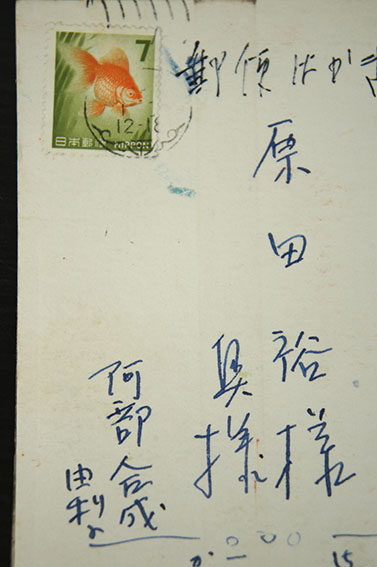 7
日本郵便 NIPPON
12-18
郵便はがき
原田裕様
奥様
阿部合成
由利